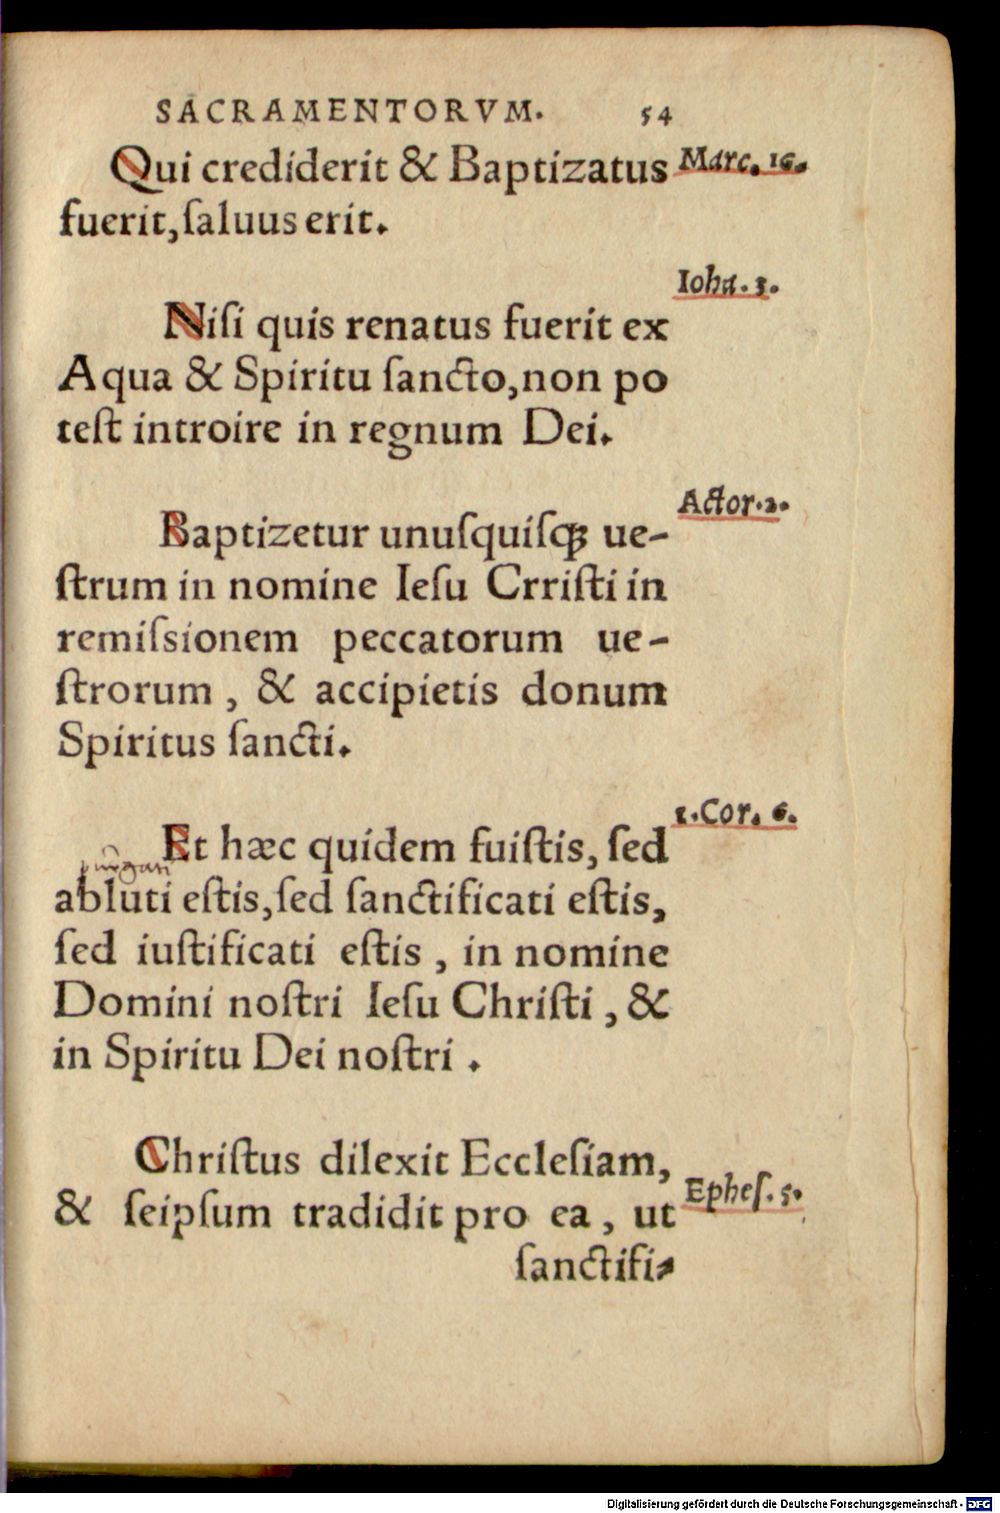 SACRAMENTORVM. 54
Qui crediderit & Baptizatus Marc. 16.
fuerit, ſaluus erit.
Ioha. 3.
Niſi quis renatus fuerit ex
Aqua & Spiritu ſancto, non po
teſt introire in regnum Dei.
Actor. 2.
Baptizetur unuſquiſqꝫ ue-
ſtrum in nomine Ieſu Crriſti in
remiſsionem peccatorum ue-
ſtrorum, & accipietis donum
Spiritus ſancti.
1. Cor. 6.
Et hæc quidem fuiſtis, ſed
abluti eſtis, ſed ſanctificati eſtis,
ſed iuſtificati eſtis, in nomine
Domini noſtri Ieſu Chriſti, &
in Spiritu Dei noſtri.
Chriſtus dilexit Eccleſiam,
Epheſ. 5.
& ſeipſum tradidit pro ea, ut
ſanctifi-
Digitalisierung gefördert durch die Deutsche Forschungsgemeinschaft - DFG